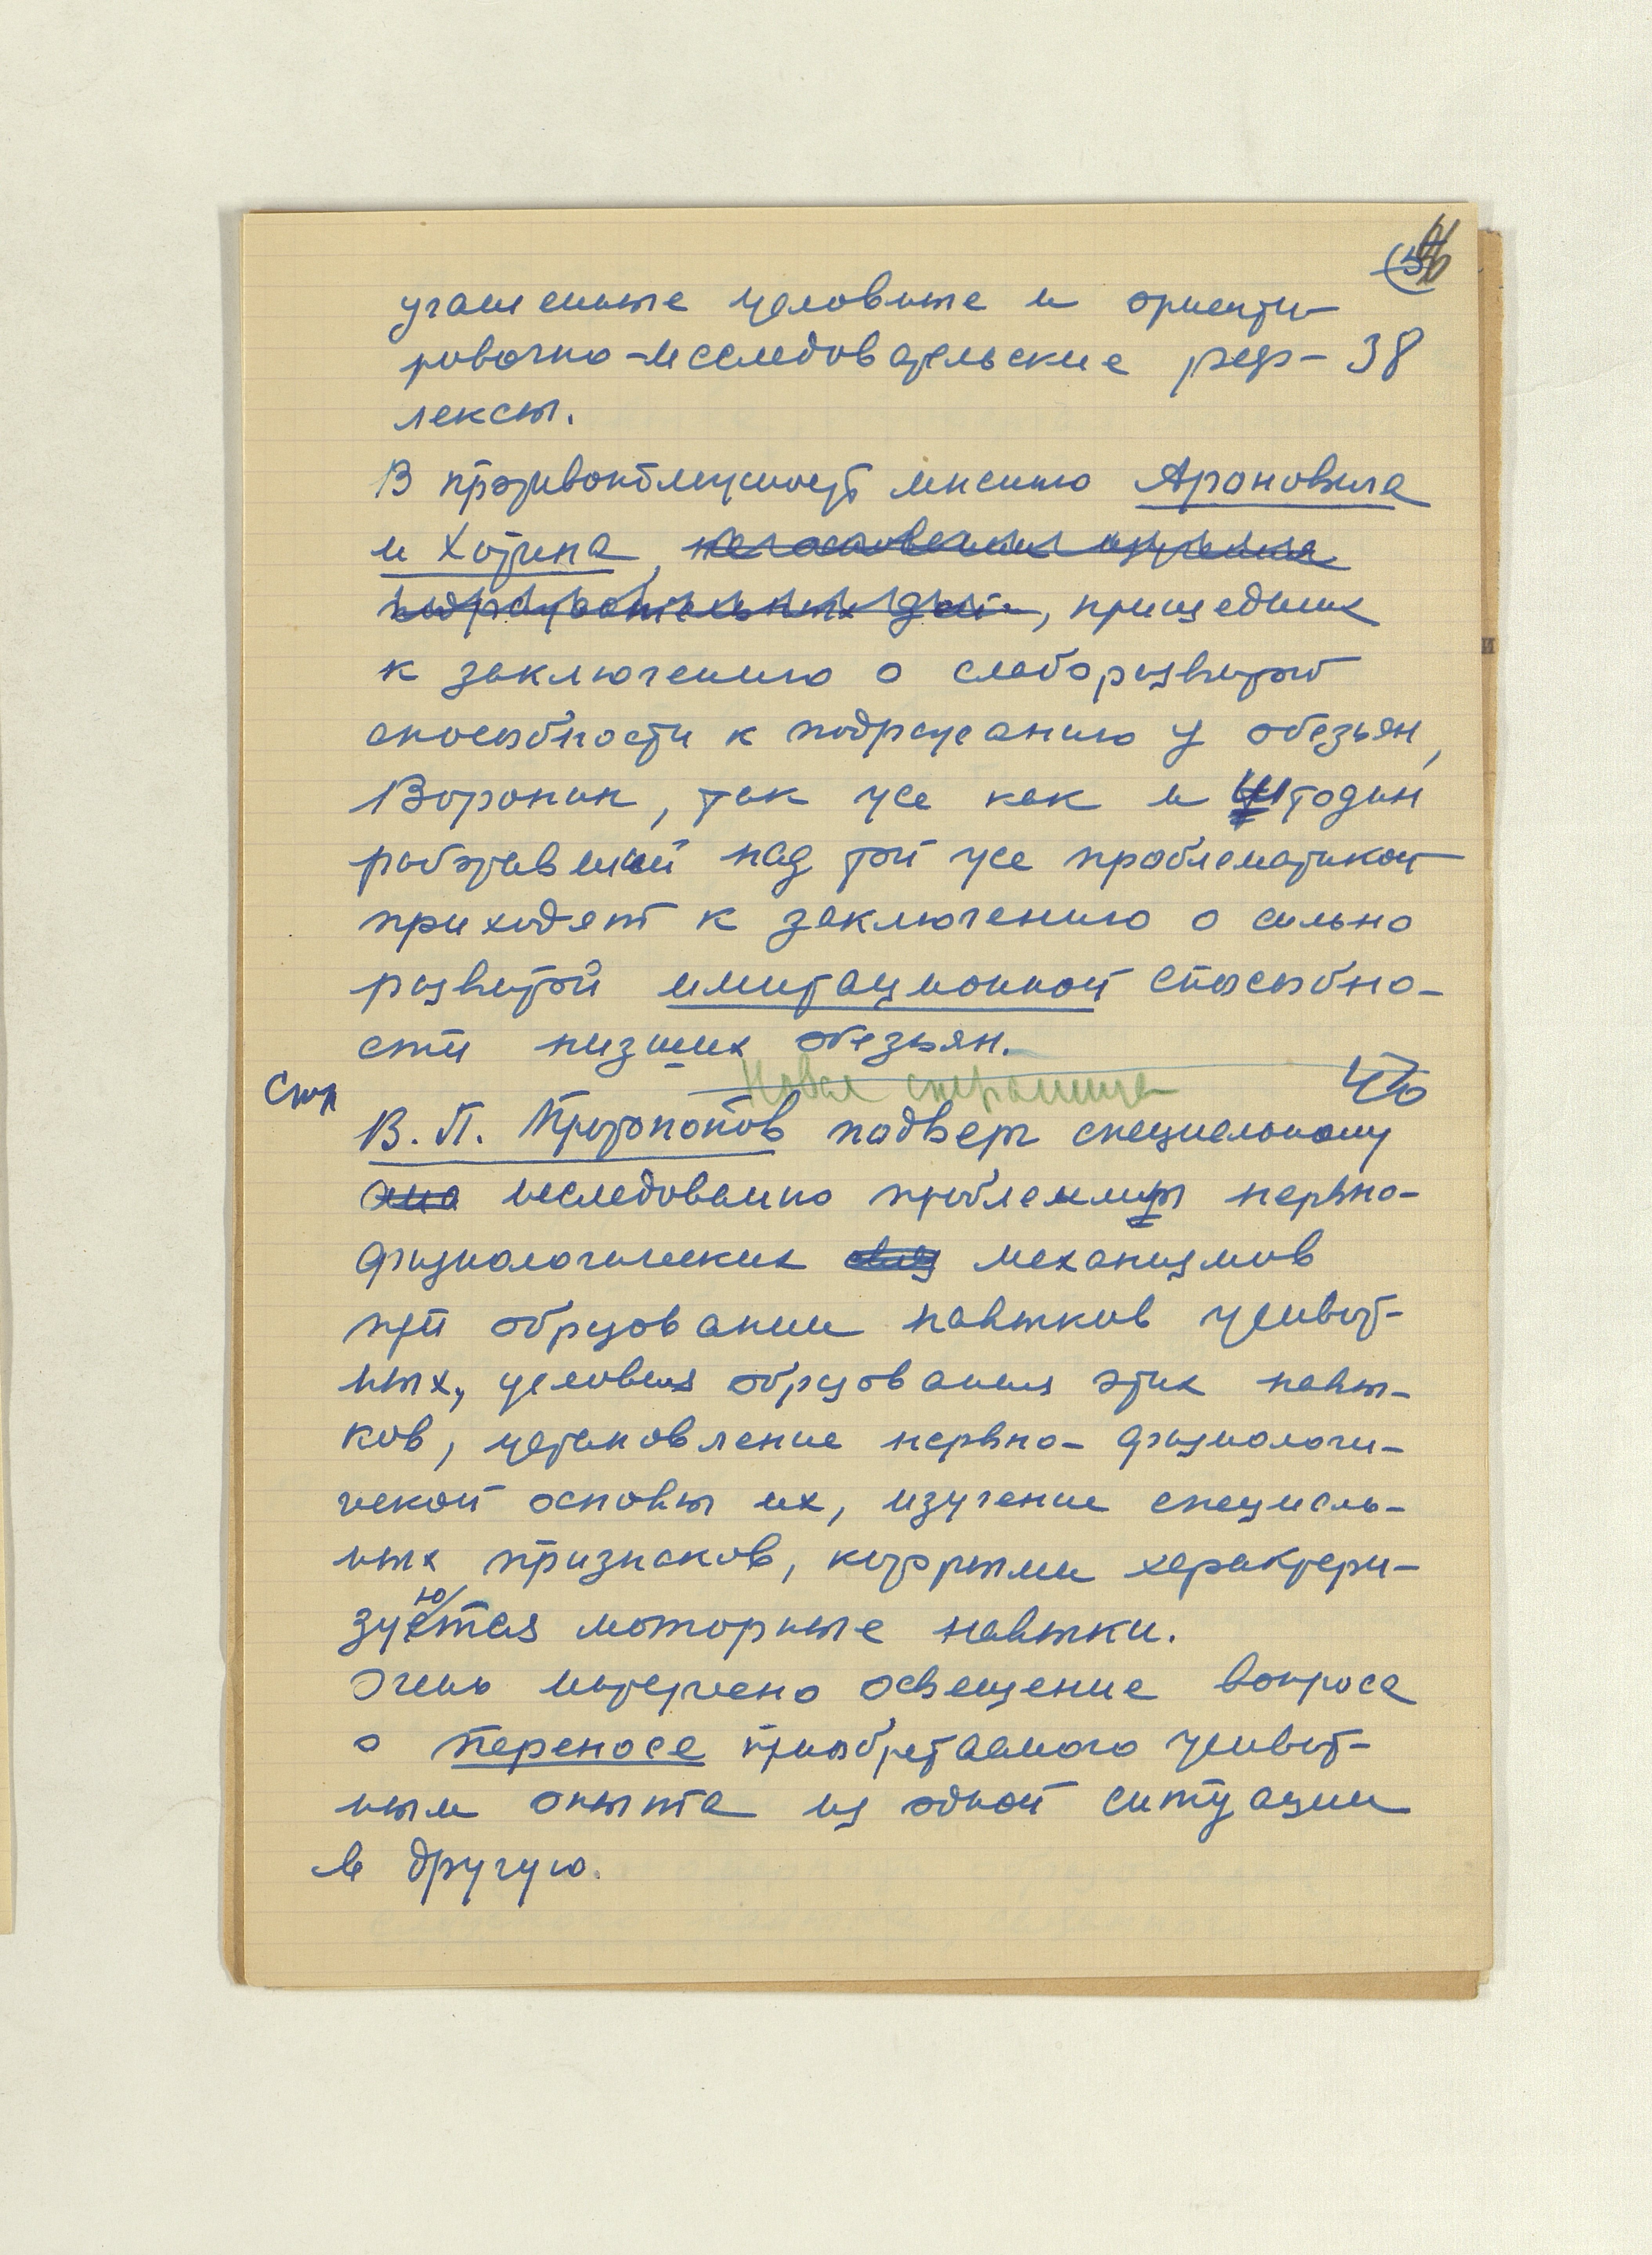 угашенные условные и ориенти-
ровочно-исследовательские реф- 38
лексы.
В противоположность мнению Ароновича
и Хотина,
, пришедших
к заключению о слаборазвитой
способности к подражанию у обезьян,
Воронин, так же как и Штодин
работавший над той же проблематикой
приходят к заключению о сильно
развитой имитационной способно-
сти низших обезьян.
Новая страница 40
Стр
В. П. Протопопов подверг специальному
исследованию проблемы нервно-
физиологических механизмов
при образовании навыков живот-
ных, условия образования этих навы-
ков, установление нервно-физиологи-
ческой основы их, изучение специаль-
ных признаков, которыми характери-
зуются моторные навыки.
Очень интересно освещение вопроса
о переносе приобретаемого живот-
ным опыта из одной ситуации
в другую.